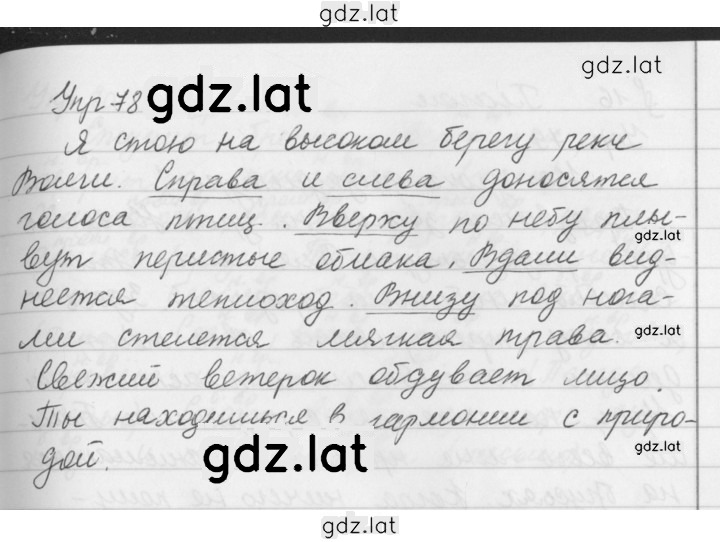 gdz.lat
gdz.lat
Упр 78 gdz.lat
Я стою на высоком берегу реки
Волги. Справа и слева доносятся
голоса птиц. Вверху по небу плы-
gdz.lat
вут перистые облака. Вдали вид-
неется теплоход. Внизу под нога-
ми стелется мягкая трава.
gdz.lat
Свежий ветерок обдувает лицо.
Ты находишься в гармонии с приро-
gdz.lat
дой.
gdz.lat
gdz.lat